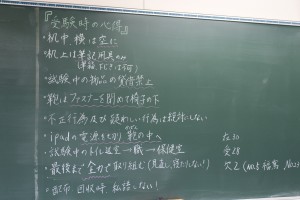 『受験時の心得』
・机中、横は空に
・机上は筆記用具のみ
(筆箱、下じきは不可)
・試験中の物品の貸借禁止
・鞄はファスナーを閉めて椅子の下
・不正行為及び疑わしい行為は絶対にしない
・ipadの電源を切り鞄の中へ
・試験中のトイレ退室→職→保健室
・最後まで全力で取り組む(見直し、寝たりしない!)
・配布 回収時 私語しない!
在30
受28
欠2